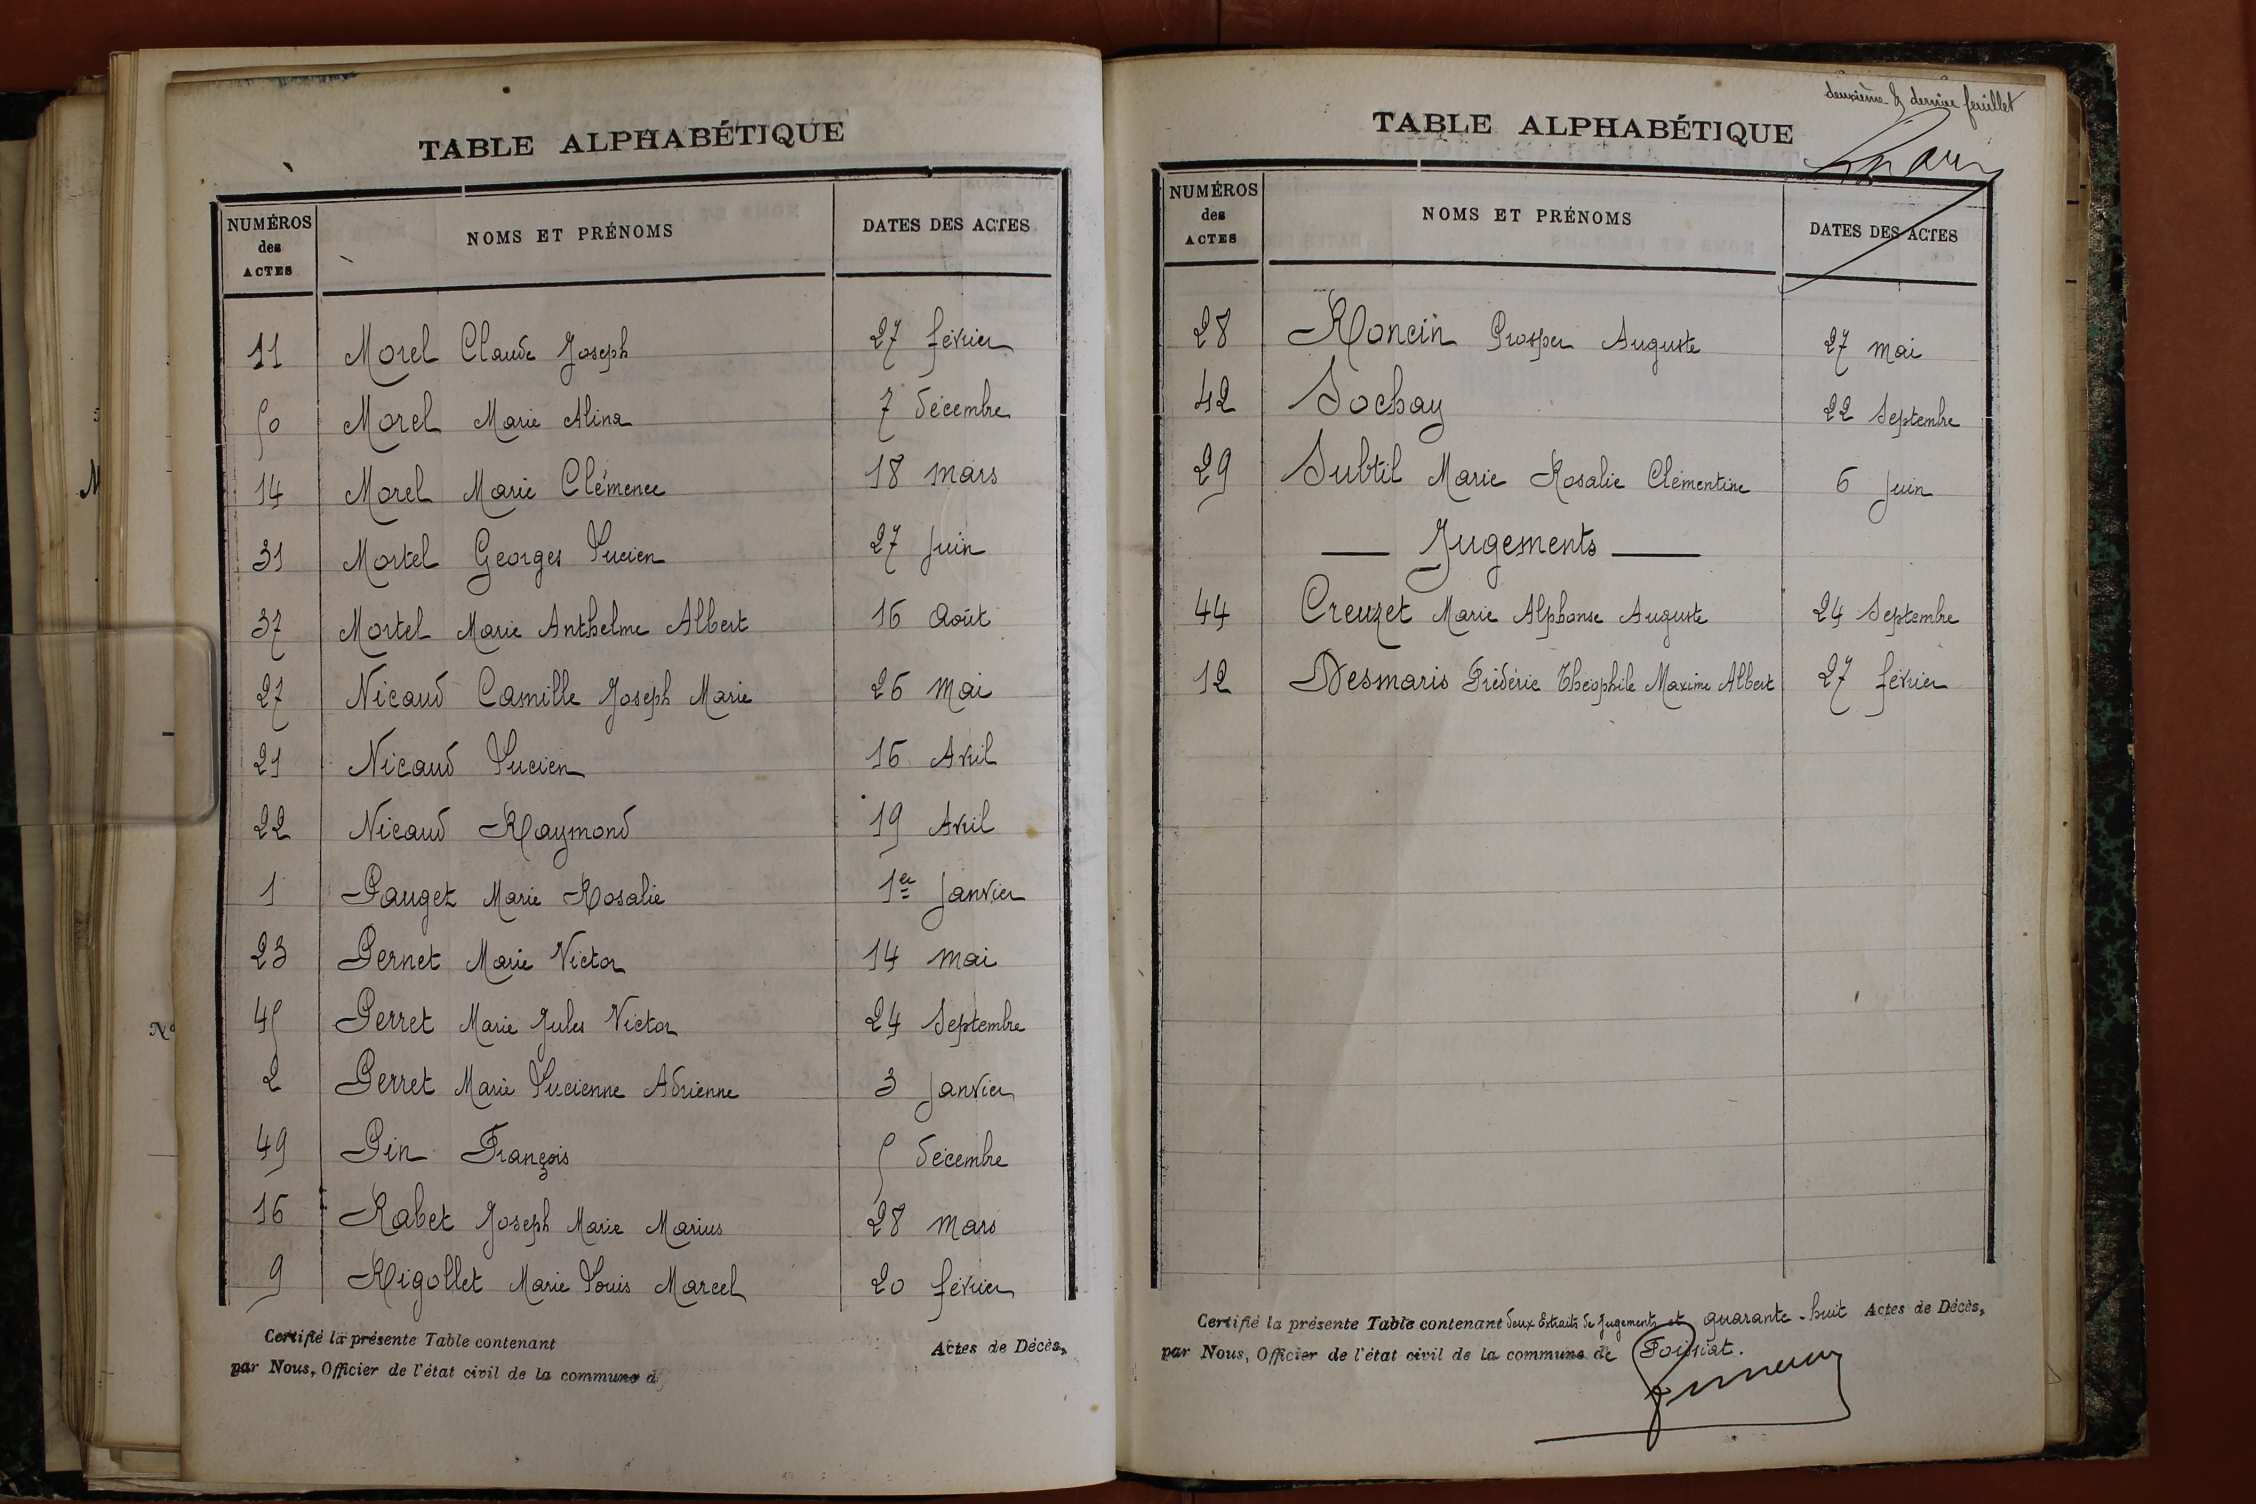 TABLE ALPHABÉTIQUE
NUMÉROS des ACTES NOMS ET PRÉNOMS DATES DES ACTES
11 Morel Claude Joseph 27 février
50 Morel Marie Alina 7 décembre
14 Morel Marie Clémence 18 mars
31 Mortel Georges Lucien 27 juin
37 Mortel Marie Anthelme Albert 16 Août
27 Nicaud Camille Joseph Marie 26 mai
21 Nicaud Lucien 16 Avril
22 Nicaud Raymond 19 Avril
1 Pauget Marie Rosalie 1er janvier
23 Pernet Marie Victor 14 mai
45 Perret Marie Jules Victor 24 Septembre
2 Perret Marie Lucienne Adrienne 3 janvier
49 Pin François 5 décembre
16 Rabet Joseph Marie Marius 28 mars
9 Rigollet Marie Louis Marcel 20 février
Certifié la présente Table contenant Actes de Décès,
par Nous, Officier de l'état civil de la commune d
deuxième & dernier feuillet
TABLE ALPHABÉTIQUE
NUMÉROS des ACTES NOMS ET PRÉNOMS DATES DES ACTES
28 Roncin Prosper Auguste 27 mai
42 Sochay 22 Septembre
29 Subtil Marie Rosalie Clémentine 6 juin
Jugements
44 Creuzet Marie Alphonse Auguste 24 Septembre
12 Desmaris Frédéric Théophile Maxime Albert 27 février
Certifié la présente Table contenant deux Extraits de Jugements et quarante-huit Actes de Décès,
par Nous, Officier de l'état civil de la commune de